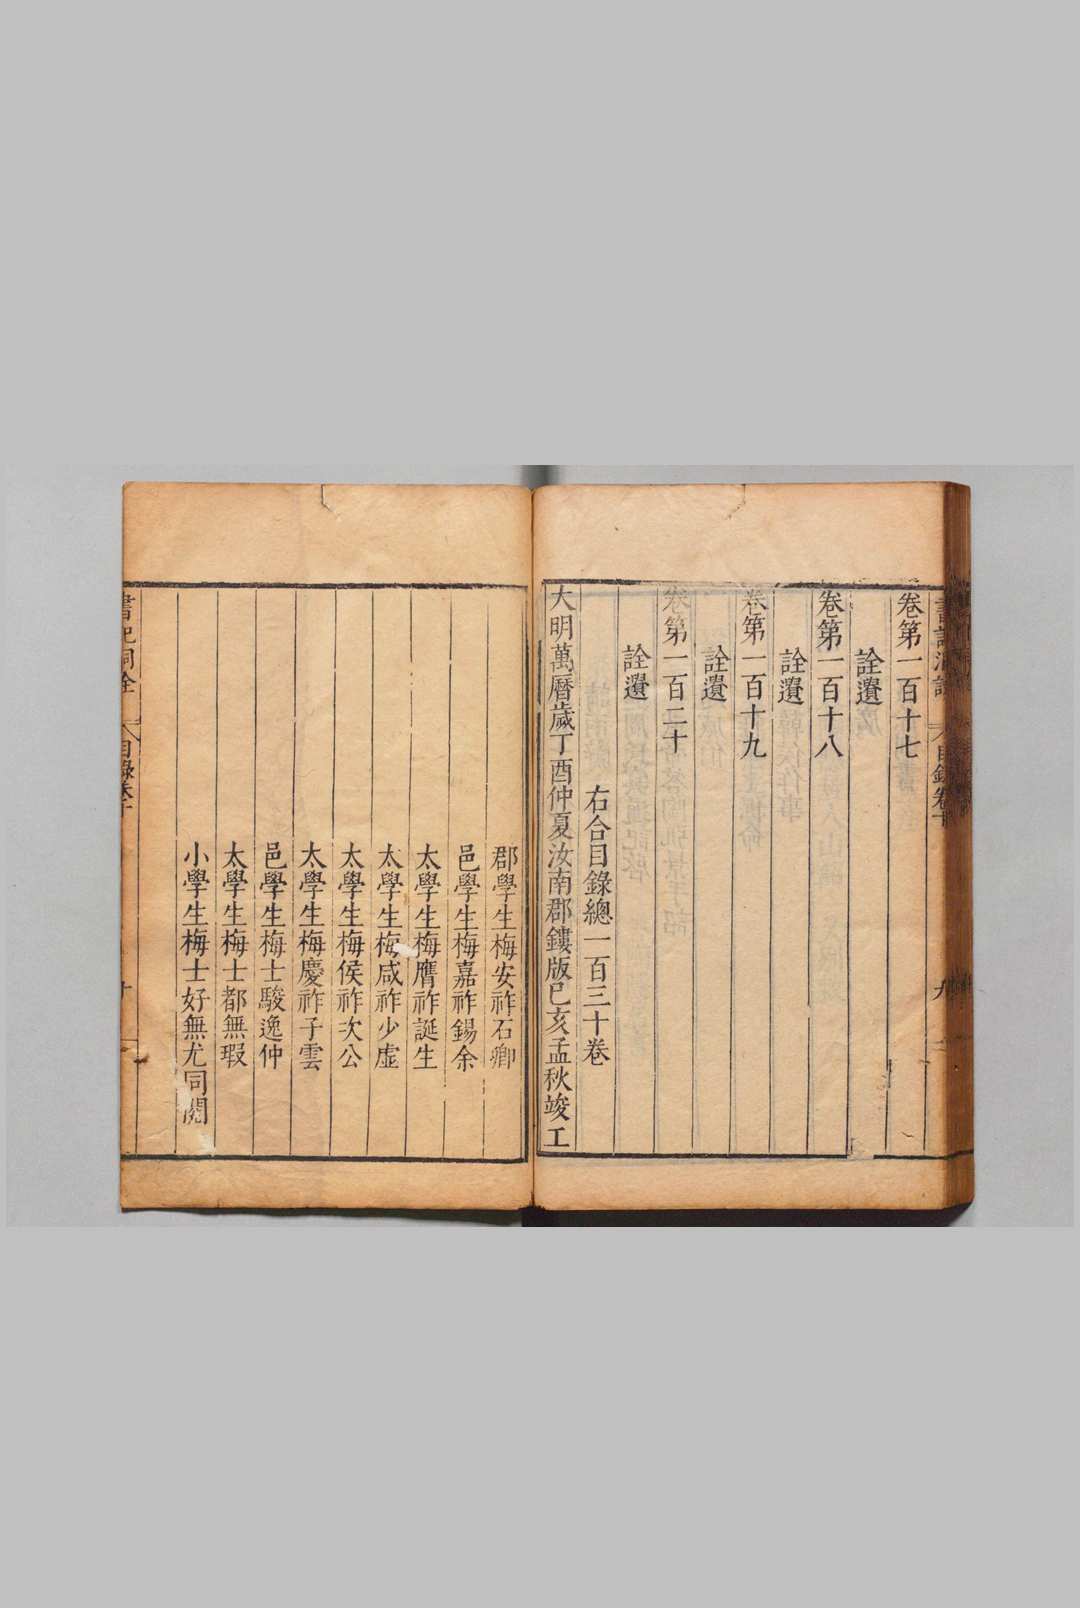 卷第一百十七
詮遺
卷第一百十八
詮遺
卷第一百十九
詮遺
卷第一百二十
詮遺
右合目錄總一百三十卷
大明萬曆歲丁酉仲夏汝南郡鏤版己亥孟秋竣工
郡學生梅安祚石卿
邑學生梅嘉祚錫余
太學生梅膺祚誕生
太學生梅咸祚少虛
太學生梅侯祚次公
太學生梅慶祚子雲
邑學生梅士駿逸仲
太學生梅士都無瑕
小學生梅士好無尤同閱
書記洞詮
目錄卷十
十